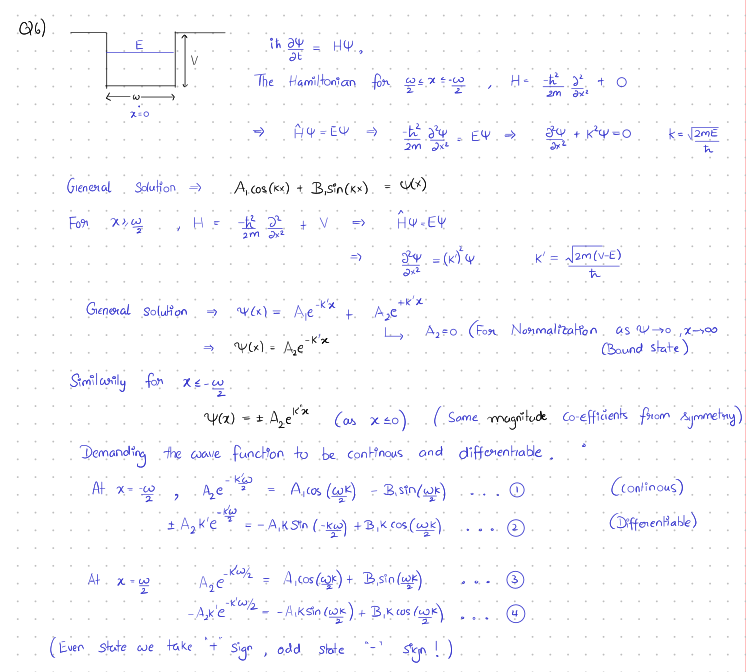 Q26)
E
V
ω
x=0
iħ ∂Ψ/∂t = HΨ,
The Hamiltonian for ω/2 ≤ x ≤ -ω/2 , H = -ħ²/2m ∂²/∂x² + 0
⇒ ĤΨ = EΨ ⇒ -ħ²/2m ∂²Ψ/∂x² = EΨ ⇒ ∂²Ψ/∂x² + K²Ψ = 0 k = √2mE/ħ
General Solution ⇒ A₁cos(kx) + B₁sin(kx) = Ψ(x)
For x ≥ ω/2 , H = -ħ²/2m ∂²/∂x² + V ⇒ ĤΨ = EΨ
⇒ ∂²Ψ/∂x² = (K')²Ψ K' = √2m(V-E)/ħ
General solution ⇒ Ψ(x) = A₁e^-K'x + A₂e^+K'x
↳ A₂=0 (For Normalization as Ψ→0, x→∞
⇒ Ψ(x) = A₂e^-K'x (Bound state)
Similarily for x ≤ -ω/2
Ψ(x) = ± A₂e^K'x (as x ≤ 0) (Same magnitude co-efficients from symmetry)
Demanding the wave function to be continous and differentiable.
At x = -ω/2 , A₂e^-K'ω/2 = A₁cos(ωk/2) - B₁sin(ωk/2) .... ① (continous)
± A₂K'e^-K'ω/2 = -A₁K sin(-kω/2) + B₁K cos(ωk/2) .... ② (Differentiable)
At x = ω/2 A₂e^-K'ω/2 = A₁cos(ωk/2) + B₁sin(ωk/2) .... ③
-A₂K'e^-K'ω/2 = -A₁K sin(ωk/2) + B₁K cos(ωk/2) .... ④
(Even state we take "+" sign, odd state "-" sign!)